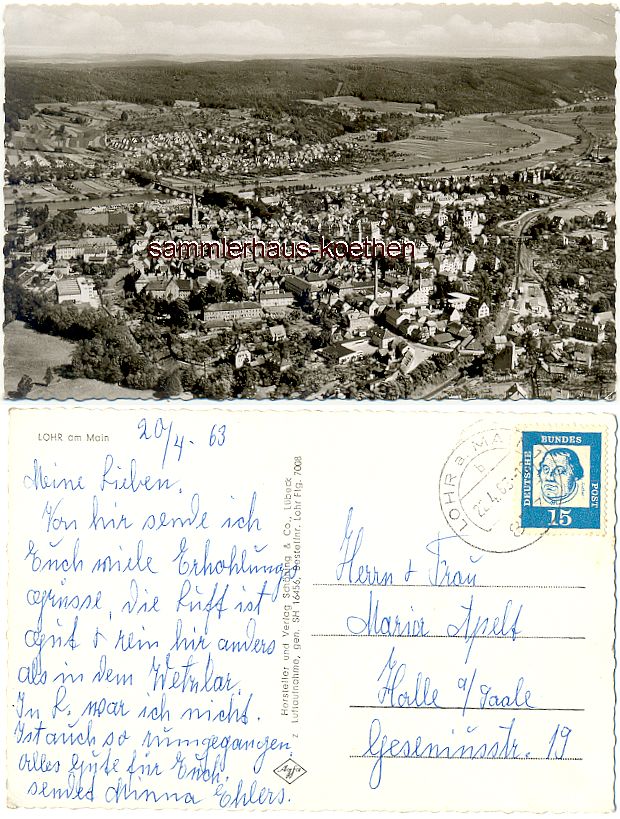 sammlerhaus-koethen
LOHR am Main
20/4. 63
Meine Lieben.
Von hir sende ich
Euch viele Erholungs
grüsse, die Luft ist
gut & rein hir anders
als in dem Wetzlar.
In L. war ich nicht.
Ist auch so rumgegangen.
alles Gute für Euch.
sendet Minna Ehlers.
Hersteller und Verlag Schöning & Co., Lübeck
z Luftaufnahme, gen. SH 16456, Bestellnr. Lohr Flg. 7008
Agfa
LOHR a. MAIN
b
22.4.63
DEUTSCHE
BUNDES
POST
15
Herrn & Frau
Maria Apelt
Halle a/Saale
Geseniusstr. 19